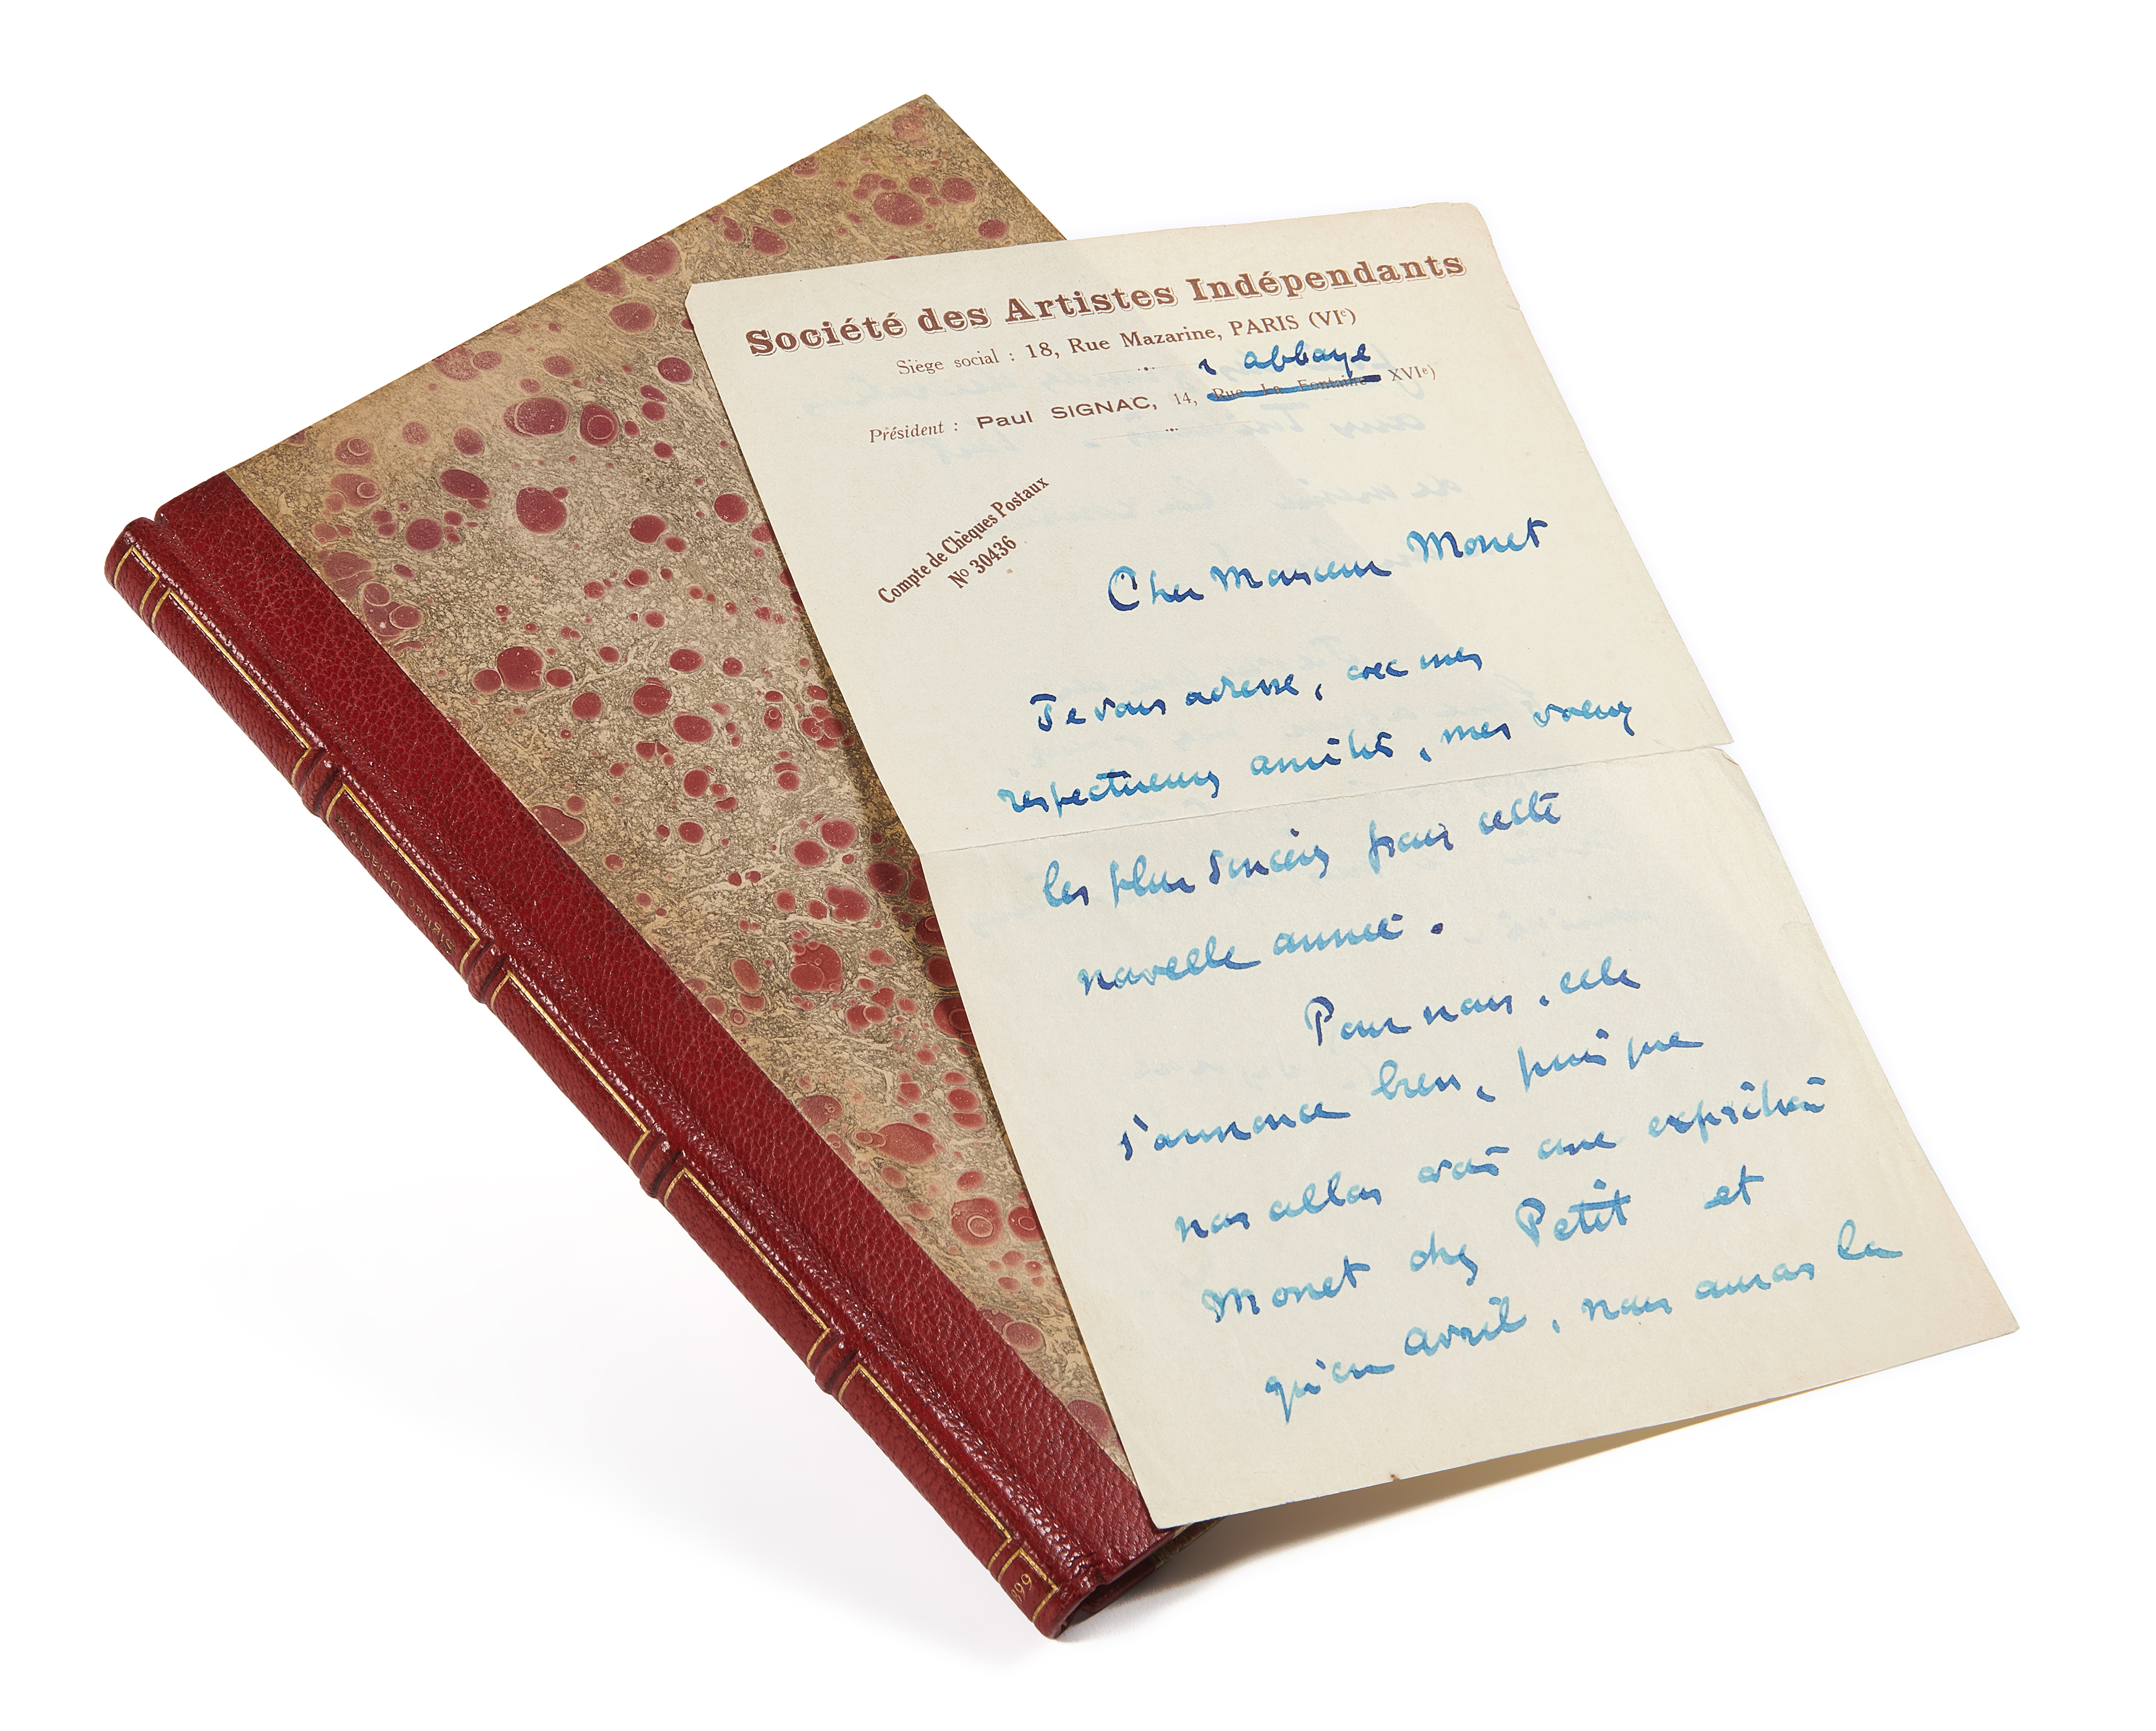 Société des Artistes Indépendants
Siège social : 18, Rue Mazarine, PARIS (VIe)
r abbaye
Président : Paul SIGNAC, 14, Rue La Fontaine XVIe)
Compte de Chèques Postaux
No 30436
Cher Monsieur Monet
Je vous adresse, avec mes
respectueuses amitiés, mes voeux
les plus sincères pour cette
nouvelle année.
Pour nous, elle
s'annonce bien, puisque
nous allons avoir une exposition
Monet chez Petit et
qu'en avril, nous aurons la
SIGNAC